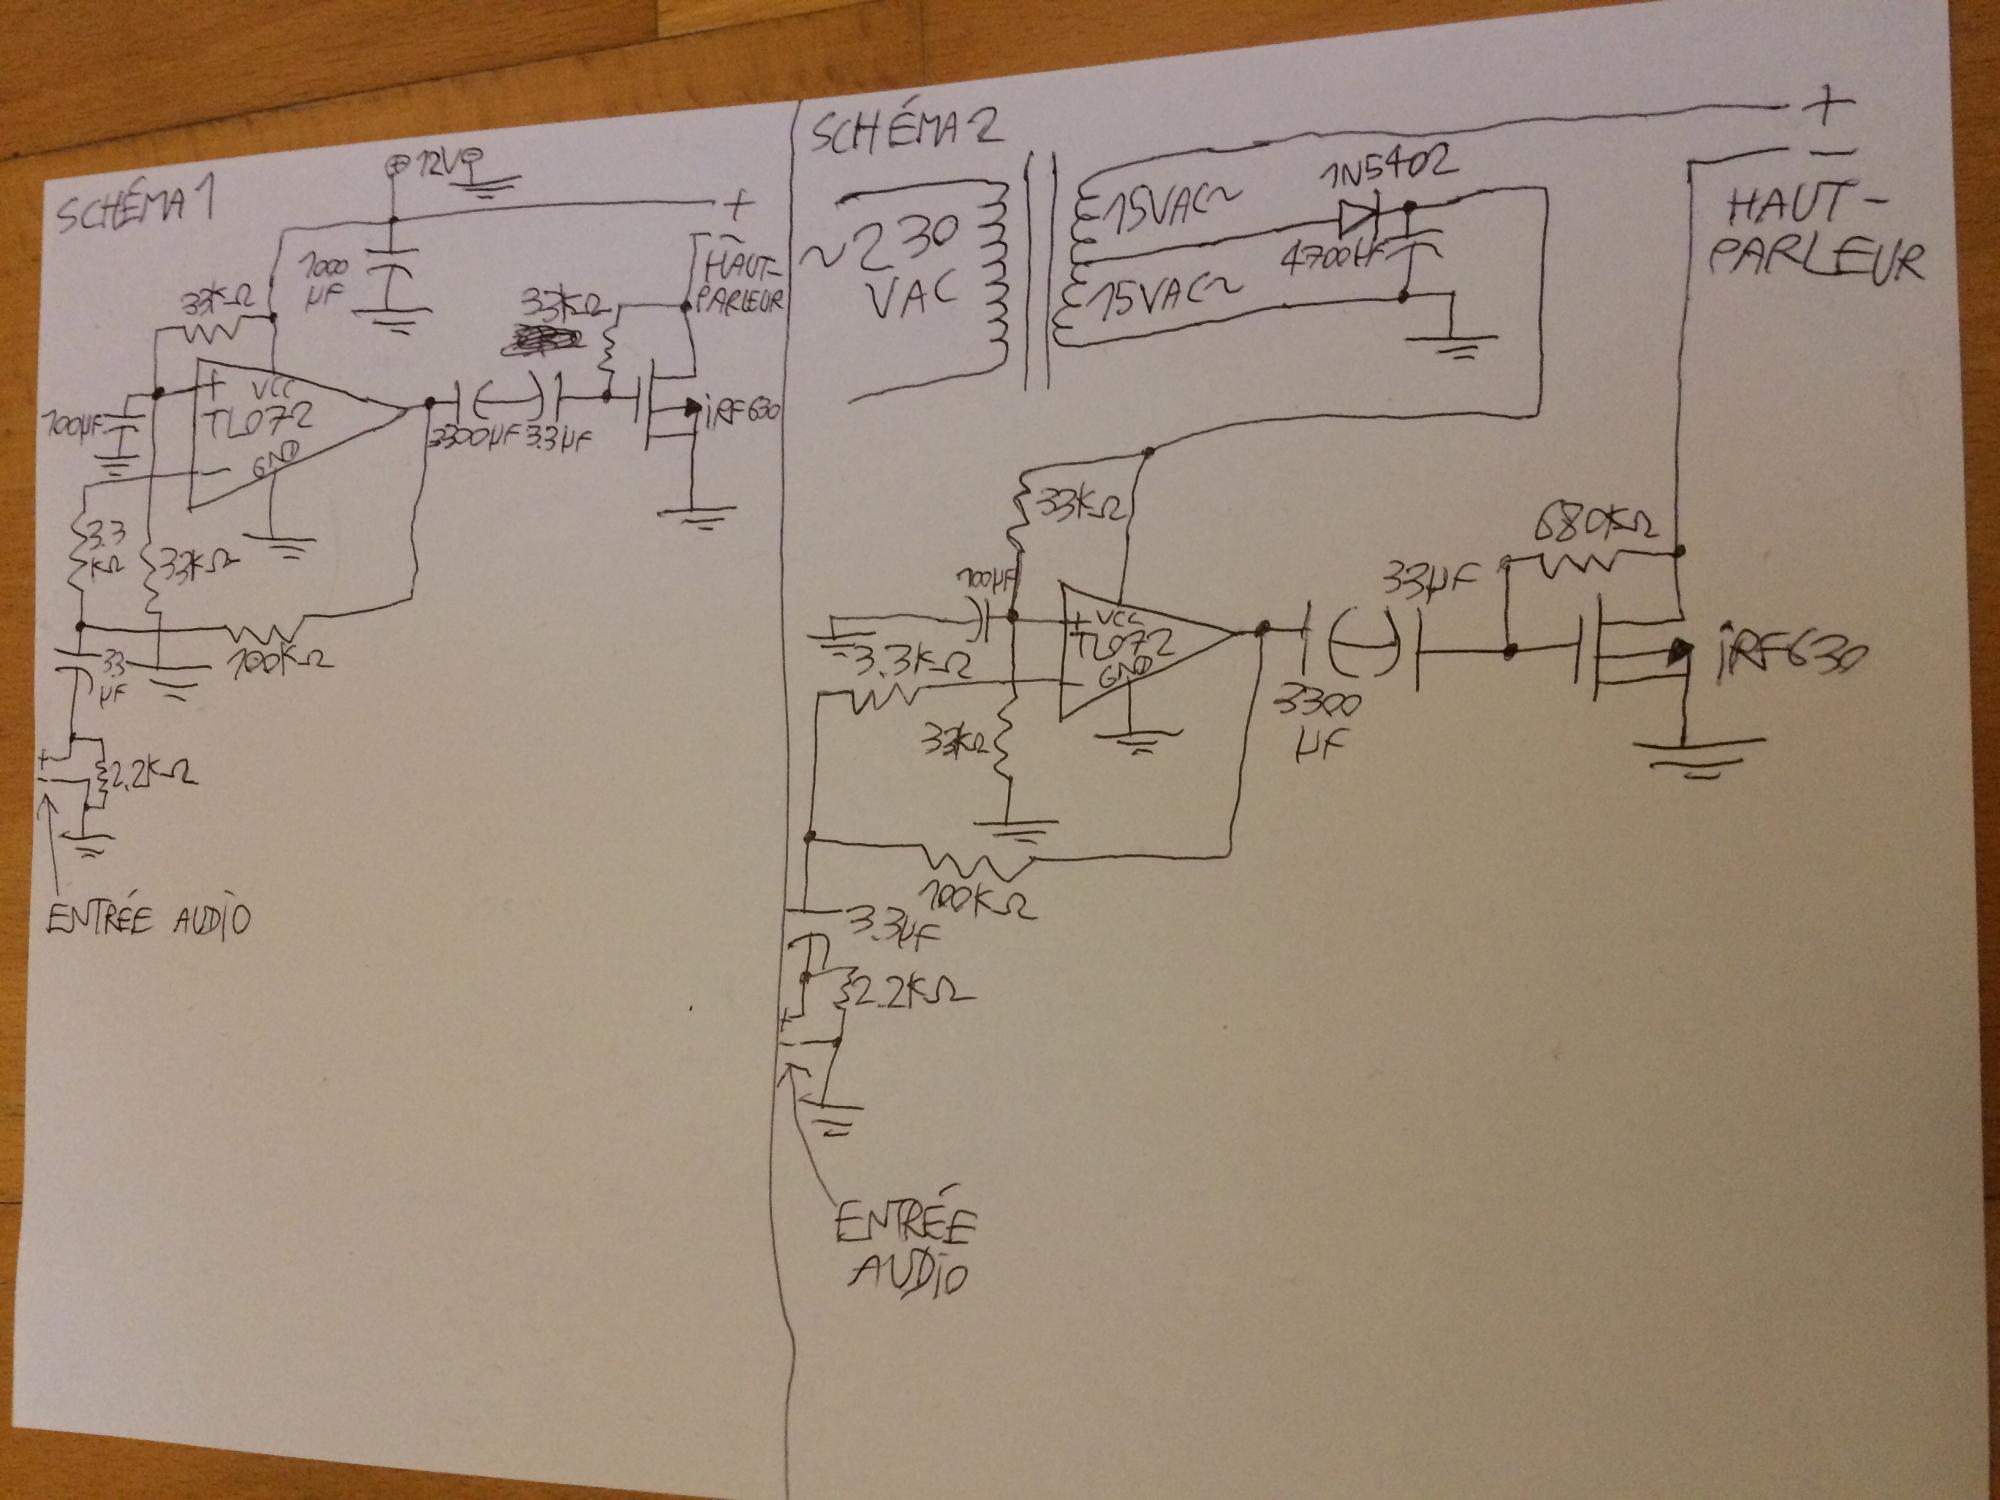 SCHÉMA 1
⊕ 12V
+
-
HAUT-
PARLEUR
1000
µF
33KΩ
33KΩ
+ VCC
TL072
- GND
100µF
3300µF 3.3µF
iRF630
3.3
KΩ
33KΩ
100KΩ
µF
+
-
2.2KΩ
ENTRÉE AUDIO
SCHÉMA 2
+
-
HAUT-
PARLEUR
~230
VAC
15VAC~
15VAC~
1N5402
4700µF
33KΩ
680KΩ
100µF
33µF
+ VCC
TL072
- GND
3.3KΩ
33KΩ
3300
µF
iRF630
100KΩ
3.3µF
2.2KΩ
+
-
ENTRÉE
AUDIO